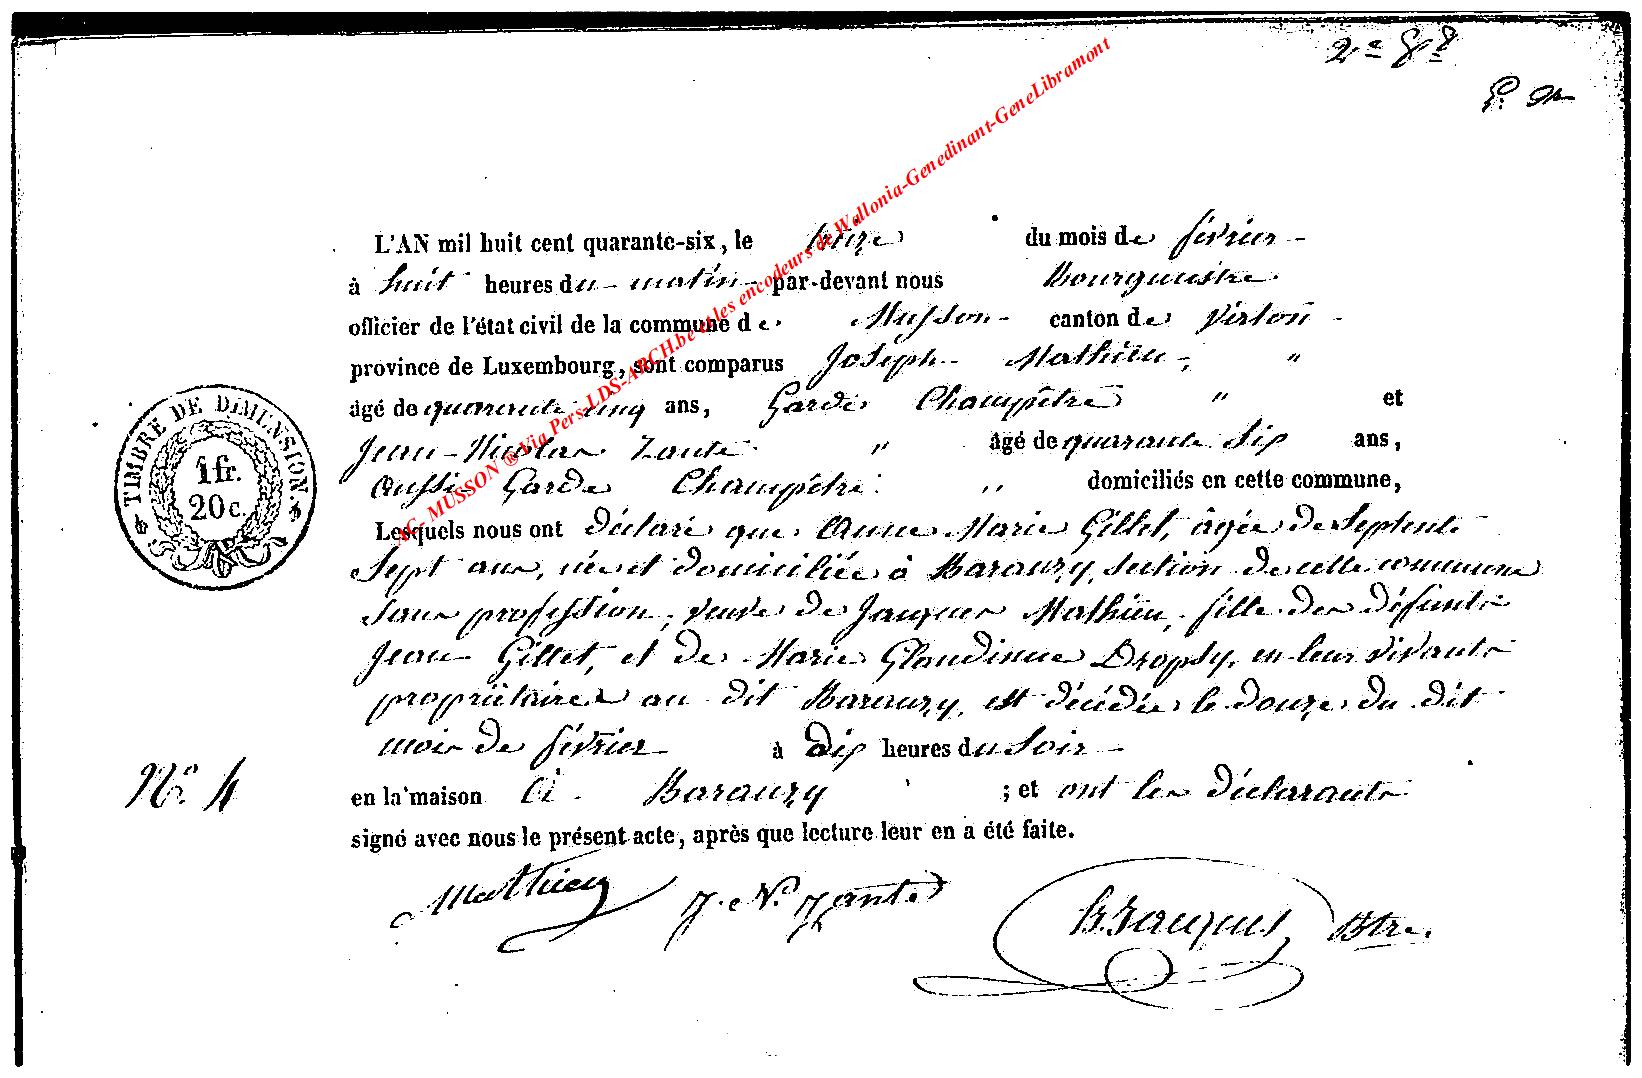 2e Gd
P. M
L'AN mil huit cent quarante-six, le treize du mois de février
à huit heures du matin par-devant nous Bourgmestre
officier de l'état civil de la commune de Musson canton de Virton
province de Luxembourg, sont comparus Joseph Mathieu, "
âgé de quarante cinq ans, Garde Champêtre " et
Jean-Nicolas Zante " âgé de quarante Six ans,
Aussi Garde Champêtre " domiciliés en cette commune,
Lesquels nous ont déclaré que Anne Marie Gillet, âgée de Septente
Sept ans, née et domiciliée à Baranzy, section de cette commune
sans profession, veuve de Jacques Mathieu, fille des défunts
Jean Gillet, et de Marie Glaudinne Dropsy, en leur vivants
propriétaires au dit Baranzy, est décédée le douze du dit
mois de février à dix heures du Soir
No 4
en la maison à Baranzy ; et ont les déclarants
signé avec nous le présent acte, après que lecture leur en a été faite.
Mathieu J. N. Zante Jacques Btre.
TIMBRE DE DIMENSION.
1 fr.
20 c.
AG- MUSSON ® Via Pers-LDS-ARCH.be et les encodeurs de Wallonia-Genedinant-GeneLibramont